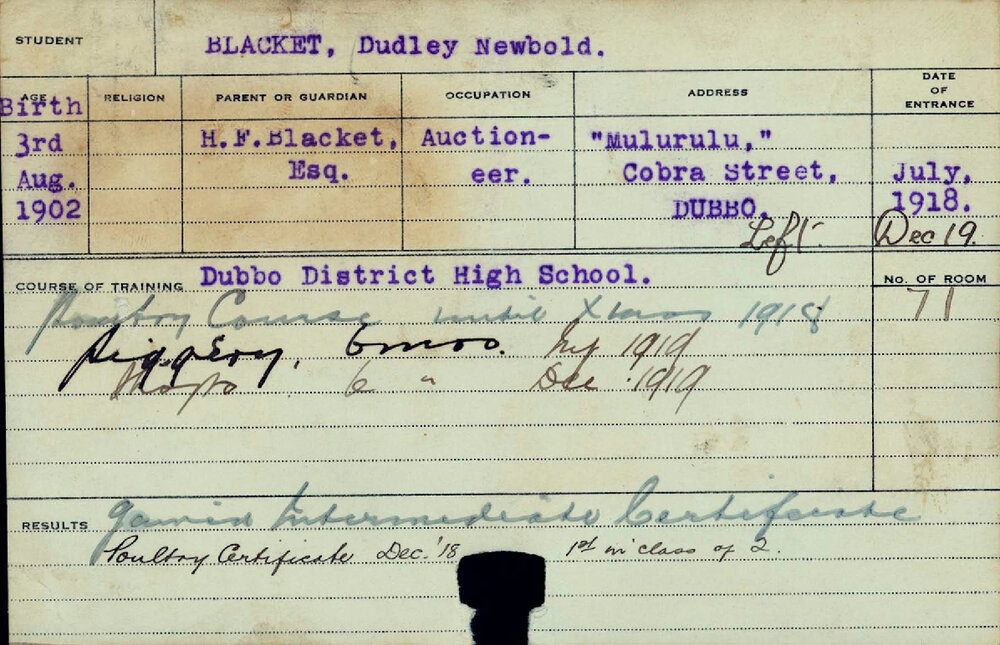 STUDENT BLACKET, Dudley Newbold.
AGE Birth RELIGION PARENT OR GUARDIAN OCCUPATION ADDRESS DATE OF ENTRANCE
3rd H.F.Blacket, Auction- "Mulurulu,"
Aug. Esq. eer. Cobra Street, July,
1902 DUBBO. 1918.
Left Dec 19.
COURSE OF TRAINING Dubbo District High School. No. OF ROOM
Poultry Course until Xmas 1918 71
Piggery, 6mos. 1919
6 " Dec. 1919
RESULTS gained Intermediate Certificate
Poultry Certificate Dec. '18 1st in class of 2.